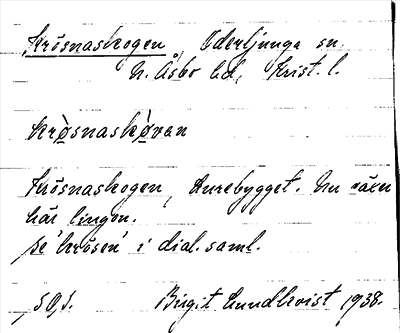 Krösnaskogen, Oderljunga sn,
N. Åsbo hd, Krist. l.
krøsnaskøvan
Krösnaskogen, Aurebygget. Nu växer
här lingon.
se 'krösen' i dial. saml.
Birgit Lundkvist 1938.